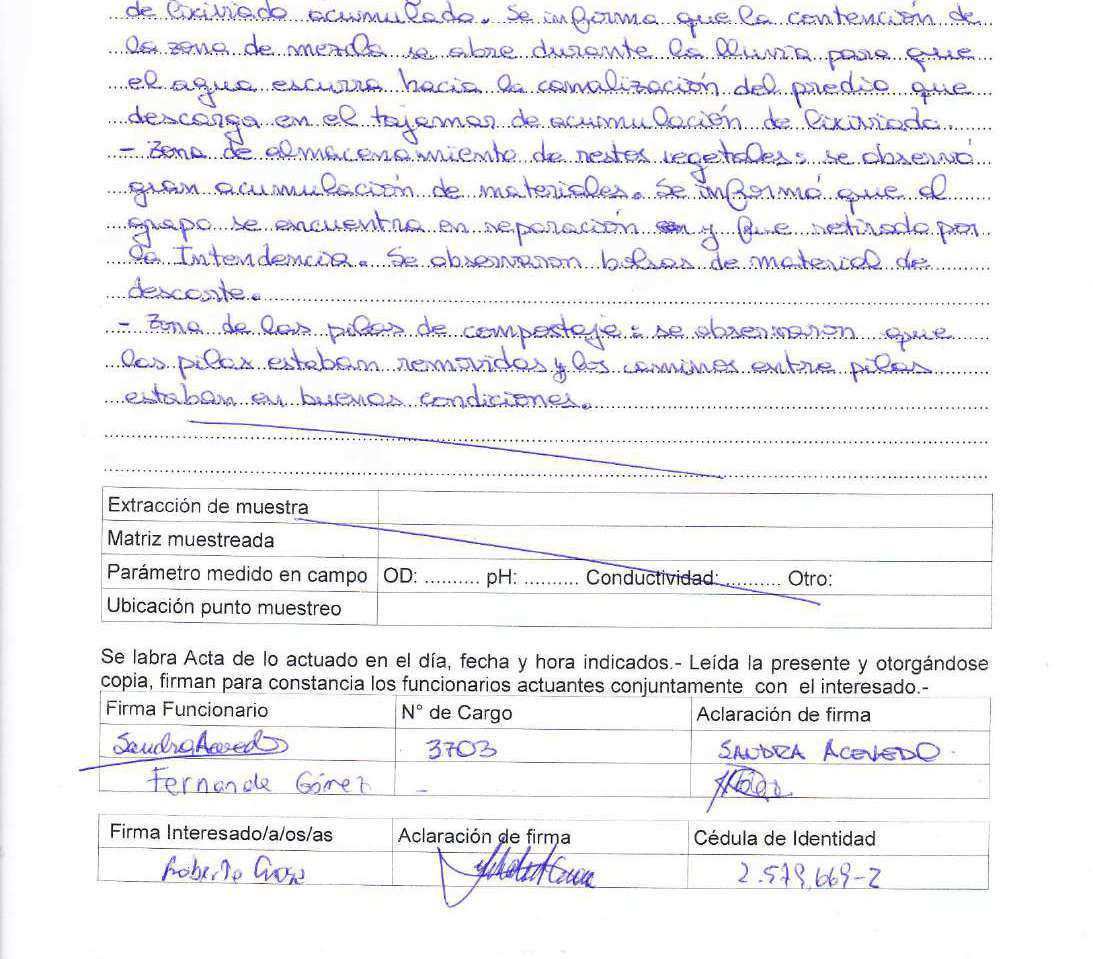 de lixiviado acumulado. Se informa que la contención de
la zona de mezcla se abre durante la lluvia para que
el agua escurra hacia la canalización del predio que
descarga en el tajamar de acumulación de lixiviado.
- Zona de almacenamiento de restos vegetales: se observó
gran acumulación de materiales. Se informó que el
grapo se encuentra en reparación y fue retirado por
la Intendencia. Se observaron bolsas de material de
descarte.
- Zona de las pilas de compostaje: se observaron que
las pilas estaban removidas y los caminos entre pilas
estaban en buenas condiciones.
Extracción de muestra
Matriz muestreada
Parámetro medido en campo OD: .......... pH: .......... Conductividad: .......... Otro:
Ubicación punto muestreo
Se labra Acta de lo actuado en el día, fecha y hora indicados.- Leída la presente y otorgándose
copia, firman para constancia los funcionarios actuantes conjuntamente con el interesado.-
Firma Funcionario N° de Cargo Aclaración de firma
Sandra Acevedo 3703 SANDRA ACEVEDO
Fernanda Gómez -
Firma Interesado/a/os/as Aclaración de firma Cédula de Identidad
Roberto 2.579.669-2